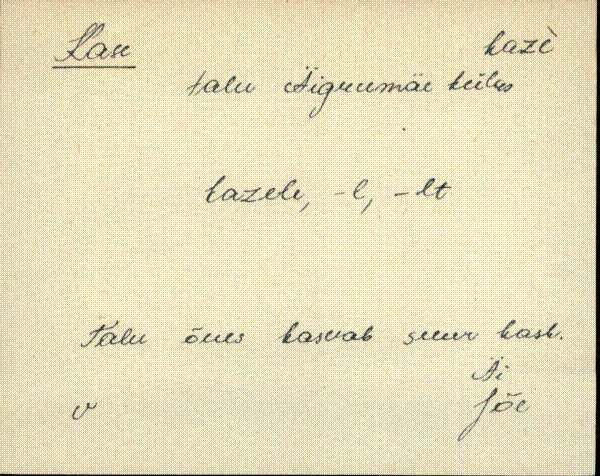 Kase kazè
talu Äigrumäe külas
kazele, -l, -lt
Talu õues kasvab suur kask.
Äi
v Jõe